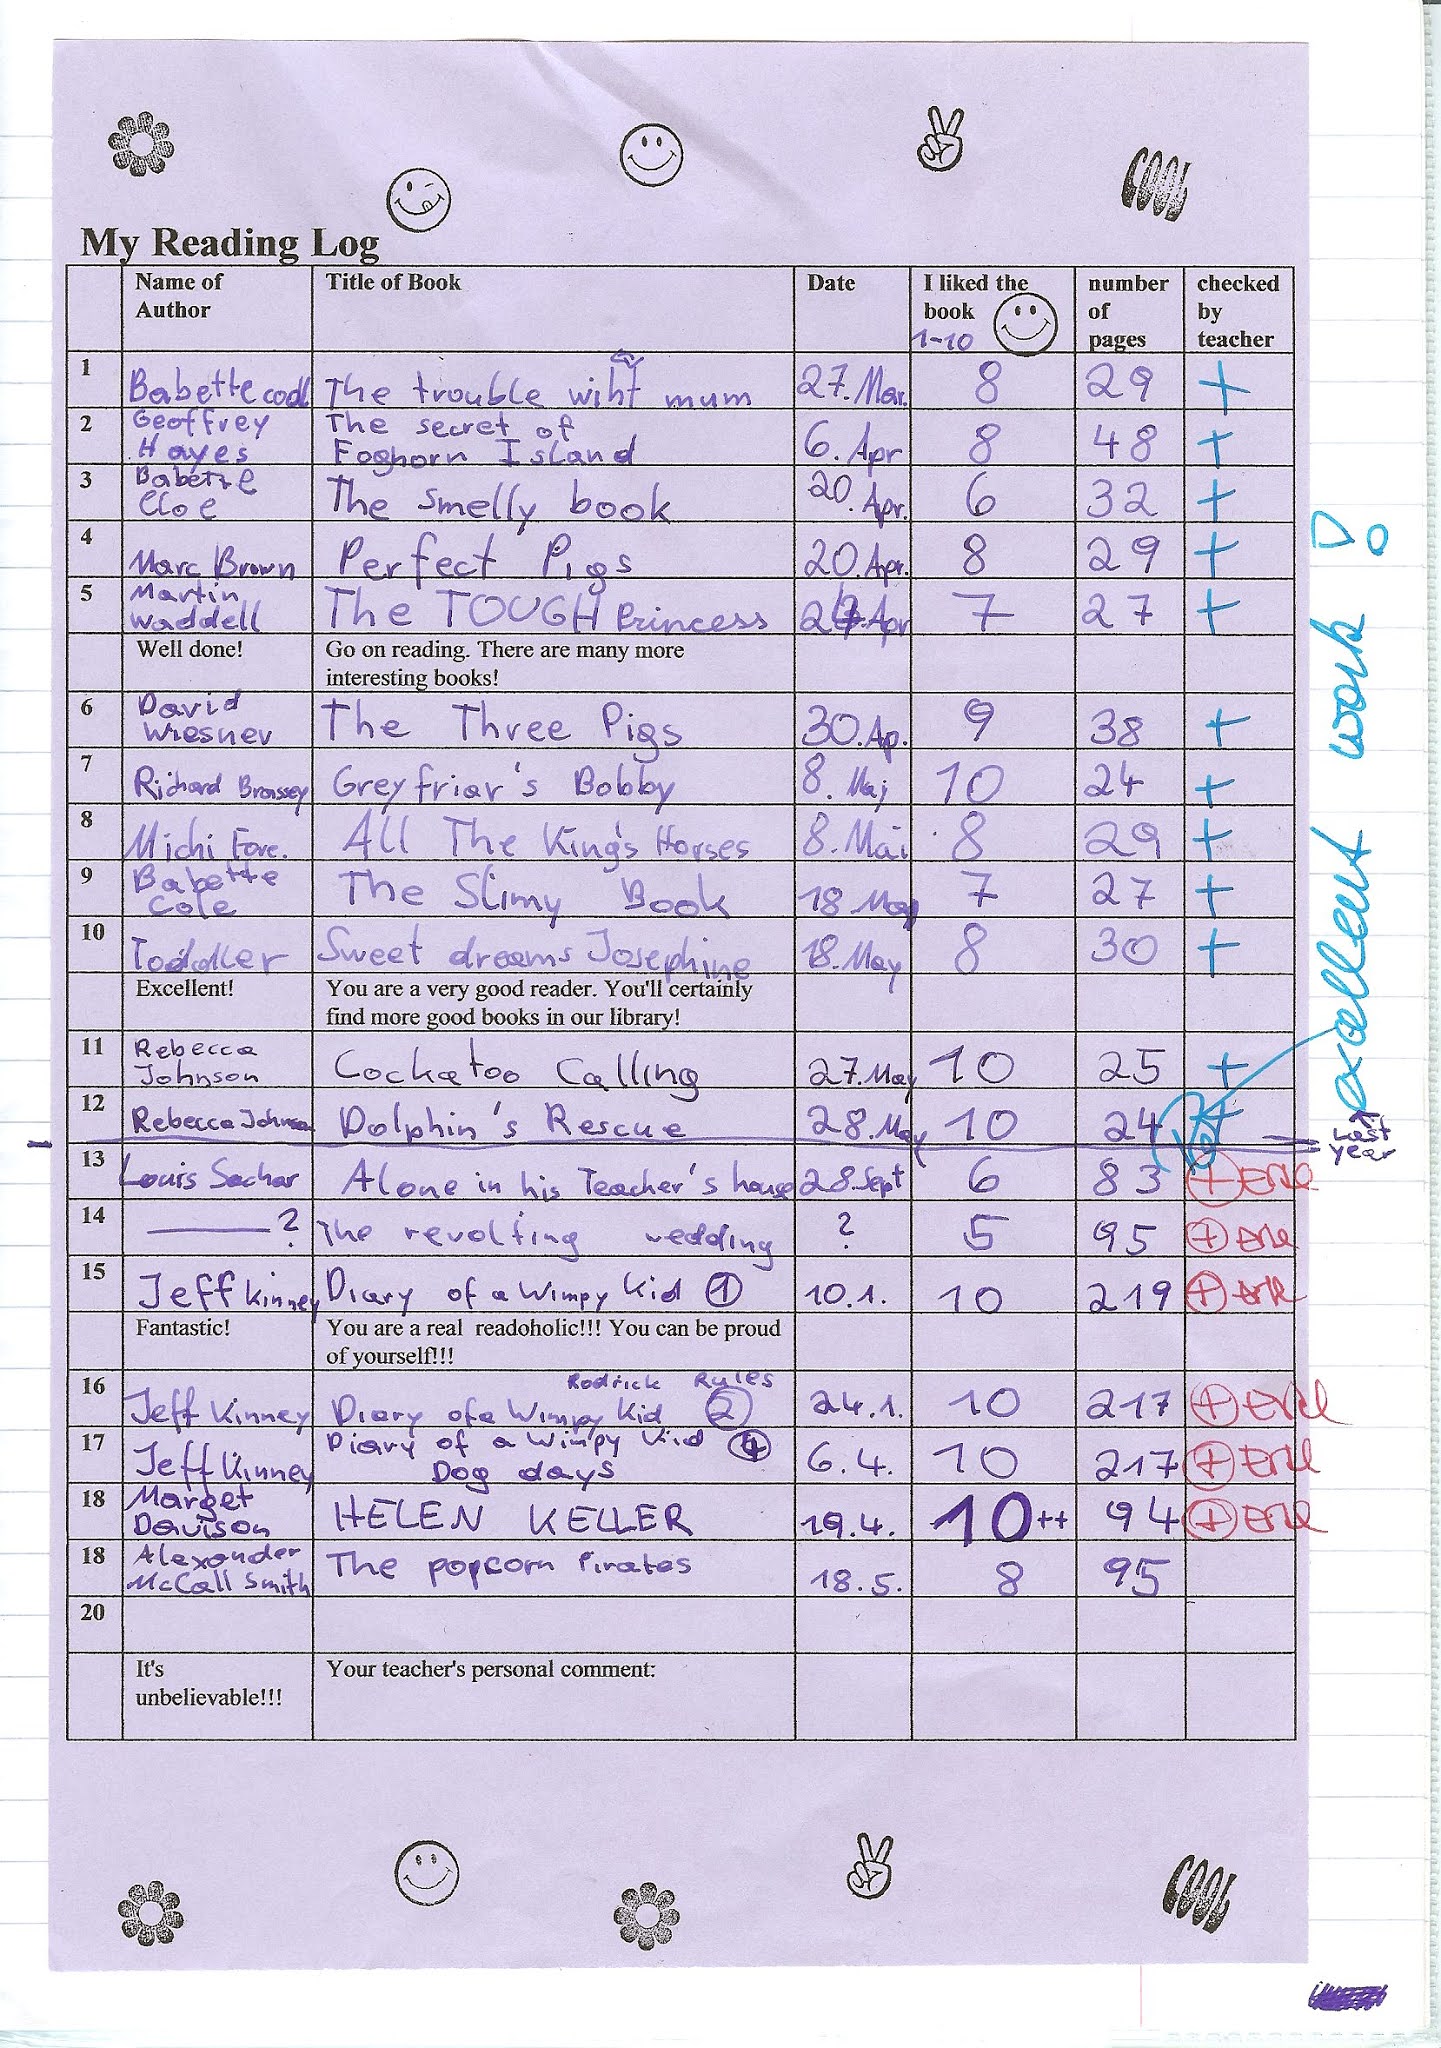 COOL
My Reading Log
Name of Author Title of Book Date I liked the book 1-10 number of pages checked by teacher
1 Babette cool The trouble wiht mum 27. Mar. 8 29 +
2 Geoffrey Hayes The secret of Foghorn Island 6. Apr 8 48 +
3 Babette Cloe The smelly book 20. Apr. 6 32 +
4 Marc Brown Perfect Pigs 20. Apr. 8 29 +
5 Martin Waddell The TOUGH Princess Apr 7 27 +
Well done! Go on reading. There are many more interesting books!
6 David Wiesner The Three Pigs 30. Ap. 9 38 +
7 Richard Brassey Greyfriar's Bobby 8. Mai 10 24 +
8 Michi Fore. All The King's Horses 8. Mai 8 29 +
9 Babette Cole The Slimy Book 18 May 7 27 +
10 Toddler Sweet dreams Josephine 18. May 8 30 +
Excellent! You are a very good reader. You'll certainly find more good books in our library!
11 Rebecca Johnson Cockatoo Calling 27. May 10 25 +
12 Rebecca Johnson Dolphin's Rescue 28. May 10 24 +
excellent work!
last year
13 Louis Sachar Alone in his Teacher's house 28. Sept 6 83 +
14 ? The revolting wedding ? 5 95 +
15 Jeff Kinney Diary of a Wimpy Kid 1 10.1. 10 219 +
Fantastic! You are a real readoholic!!! You can be proud of yourself!!!
16 Jeff Kinney Diary of a Wimpy Kid 2 Rodrick Rules 24.1. 10 217 +
17 Jeff Kinney Diary of a Wimpy Kid 4 Dog days 6.4. 10 217 +
18 Marget Davison HELEN KELLER 19.4. 10++ 94 +
18 Alexander McCall Smith The popcorn Pirates 18.5. 8 95
20
It's unbelievable!!! Your teacher's personal comment:
COOL